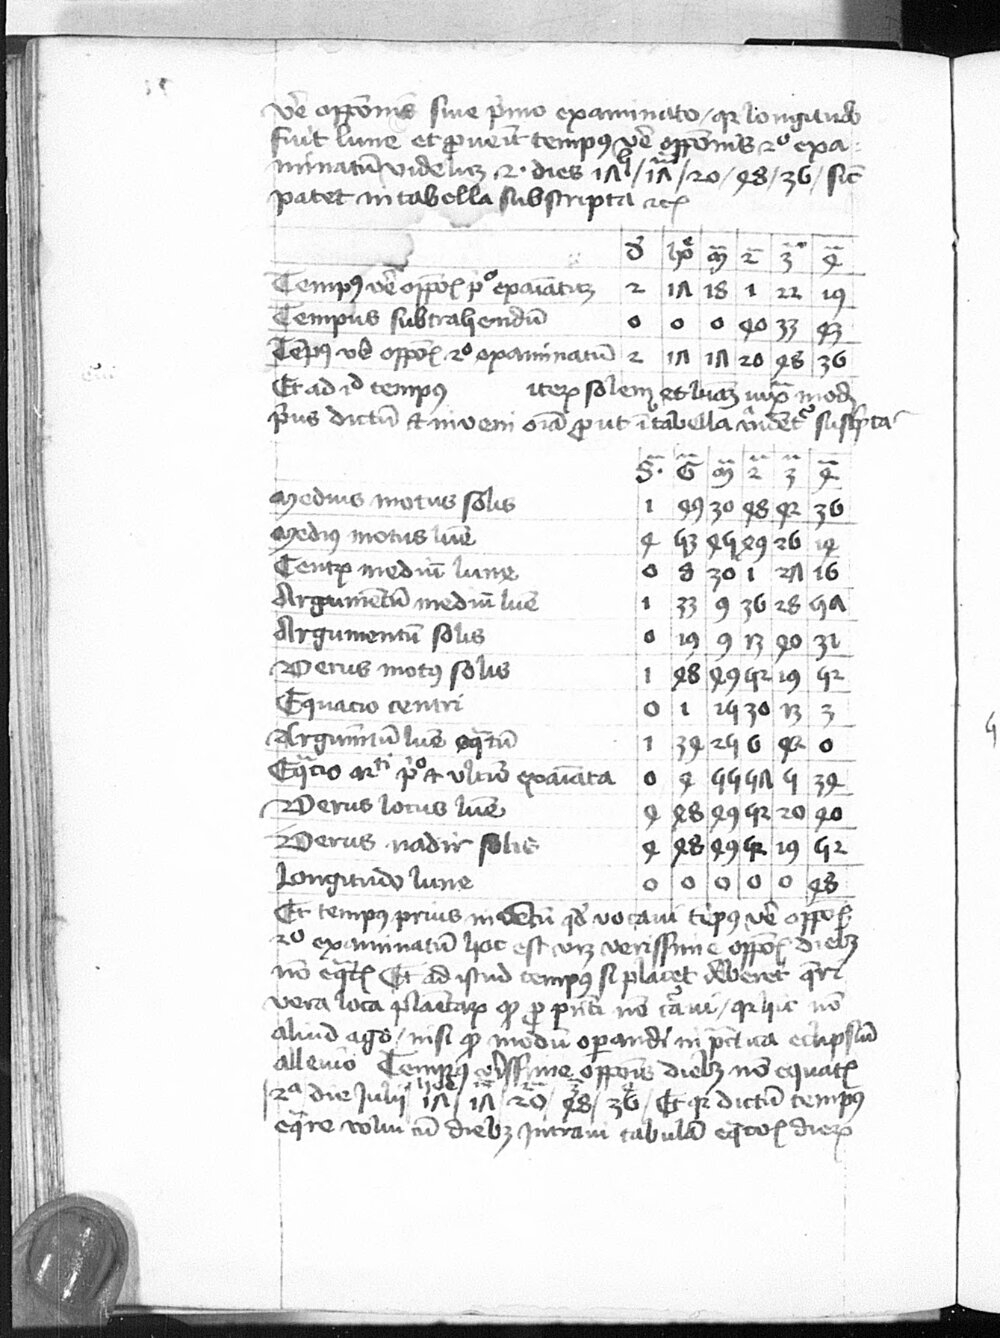 ver̄ opp̄onis siue p̄mo examinato / qr longitudo
fuit lune et prouenit tempus ver̄ opp̄onis 2o exa
minatum videlicet 2 dies 17 / 17 / 20 / 48 / 36 / sic
patet in tabella subscripta etc
d ho m̄ 2 3 4
Tempus ver̄ oppo͞s po examinatum 2 17 18 1 22 19
Tempus subtrahendum 0 0 0 40 33 43
Tempus ver̄ oppo͞s 2o examinatum 2 17 17 20 48 36
Et ad id tempus iterum solem et lunam iuxta modum
prius dictum et inveni omnia prout in tabella subscripta
S G m̄ 2 3 4
Medius motus solis 1 49 30 48 42 36
Medius motus lune 4 53 45 49 26 14
Centrum medium lune 0 8 30 1 27 16
Argumentum medium lune 1 33 9 36 28 57
Argumentum solis 0 19 9 13 40 31
Verus motus solis 1 48 49 52 19 52
Equacio centri 0 1 25 30 13 3
Argumentum lune equatum 1 34 25 6 42 0
Equacio arti po et ultimo examinata 0 4 55 57 5 34
Verus locus lune 4 48 49 52 20 40
Verus nadir solis 4 48 49 52 19 52
Longitudo lune 0 0 0 0 0 48
Et tempus prius inventum quod vocavi tempus ver̄ oppo͞s
2o examinatum hoc est verissime oppo͞s diebus
non equatis Et ad istud tempus si placet deberent queri
vera loca planetarum non qr hic non
aliud ago / nisi modum operandi in practica eclipsium
Tempus verissime opp̄onis diebus non equatis
2a die Julii 17 / 17 / 20 / 48 / 36 / Et qr dictum tempus
equare volui cum diebus Intravi tabulam equacionis dierum